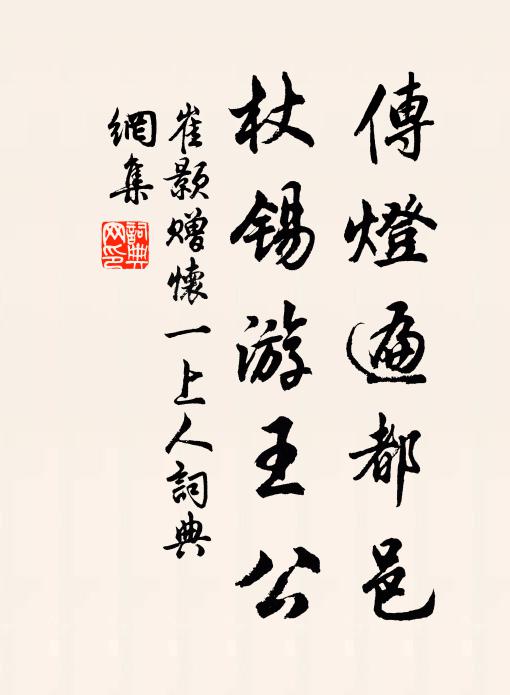 傳燈遍都邑
杖錫游王公
崔顥贈懷一上人詞典
網集
詞典
网印